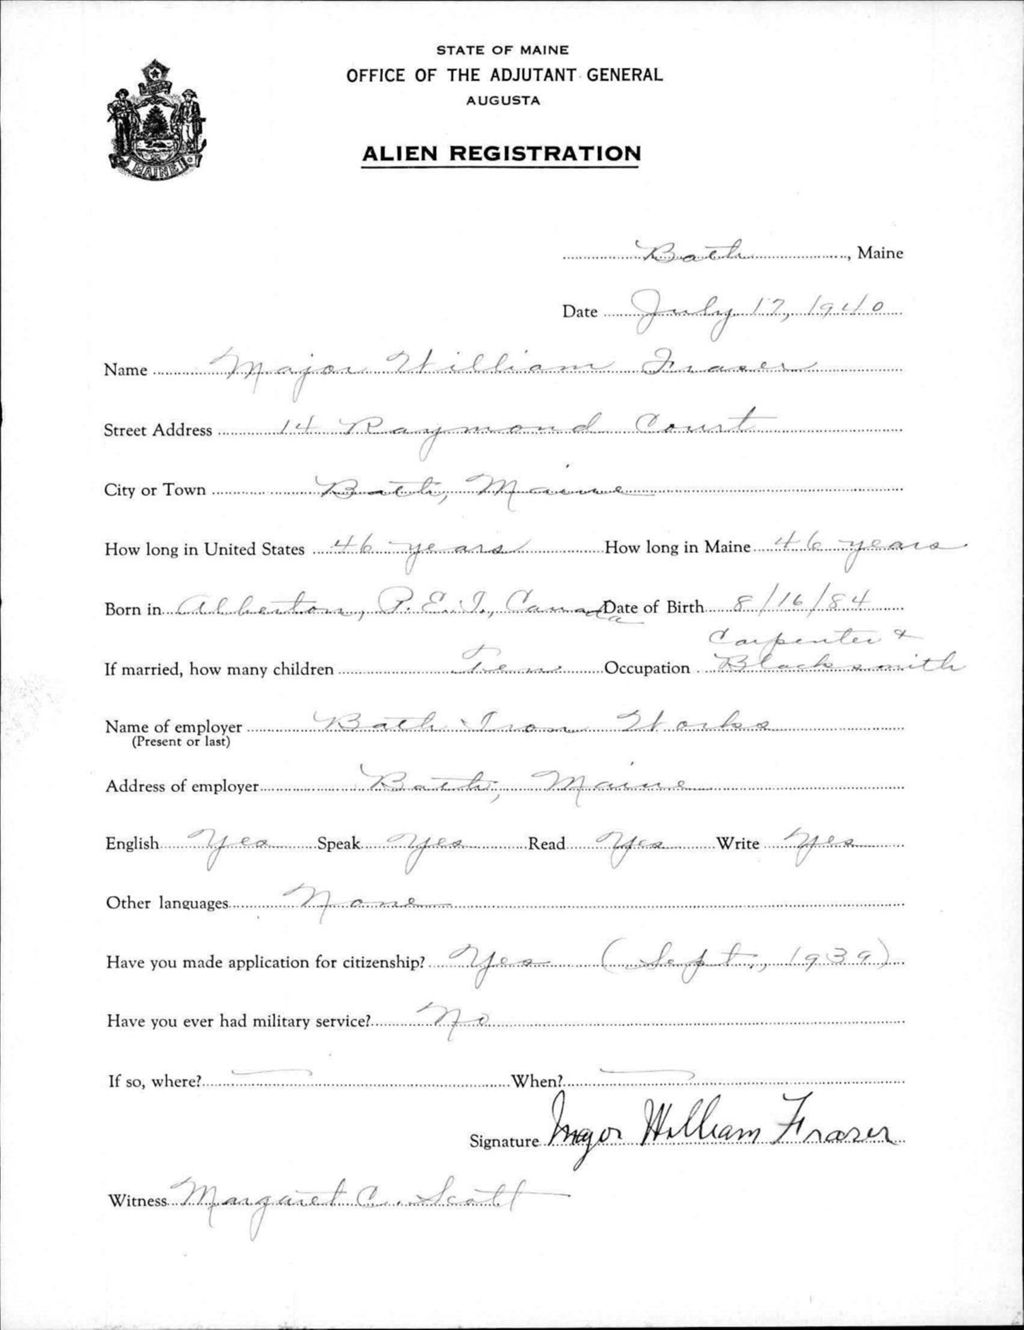 STATE OF MAINE
OFFICE OF THE ADJUTANT GENERAL
AUGUSTA
ALIEN REGISTRATION
MAINE
Bath, Maine
Date July 17, 1940
Name Major William Fraser
Street Address 14 Raymond Court
City or Town Bath, Maine
How long in United States 46 years How long in Maine 46 years
Born in Alberton, P.E.I., Canada Date of Birth 8/16/84
If married, how many children Ten Occupation Carpenter & Blacksmith
Name of employer Bath Iron Works
(Present or last)
Address of employer Bath, Maine
English Yes Speak Yes Read Yes Write Yes
Other languages None
Have you made application for citizenship? Yes (Sept., 1939)
Have you ever had military service? No
If so, where? — When? —
Signature Major William Fraser
Witness Margaret C. Scott